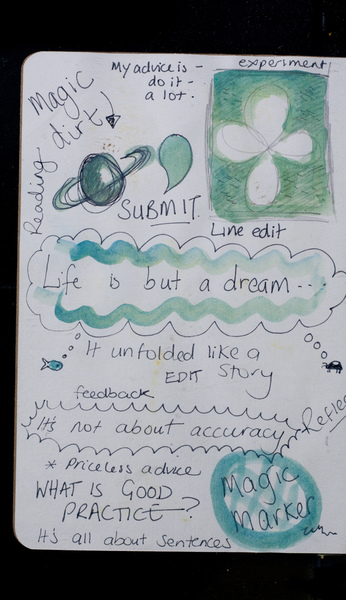 My advice is -
do it -
a lot.
experiment
Magic
dirt
Reading
SUBMIT.
Line edit
Life is but a dream...
It unfolded like a
EDIT Story
feedback
It's not about accuracy
* Priceless advice
WHAT IS GOOD
PRACTICE—?
Magic
Marker
It's all about sentences